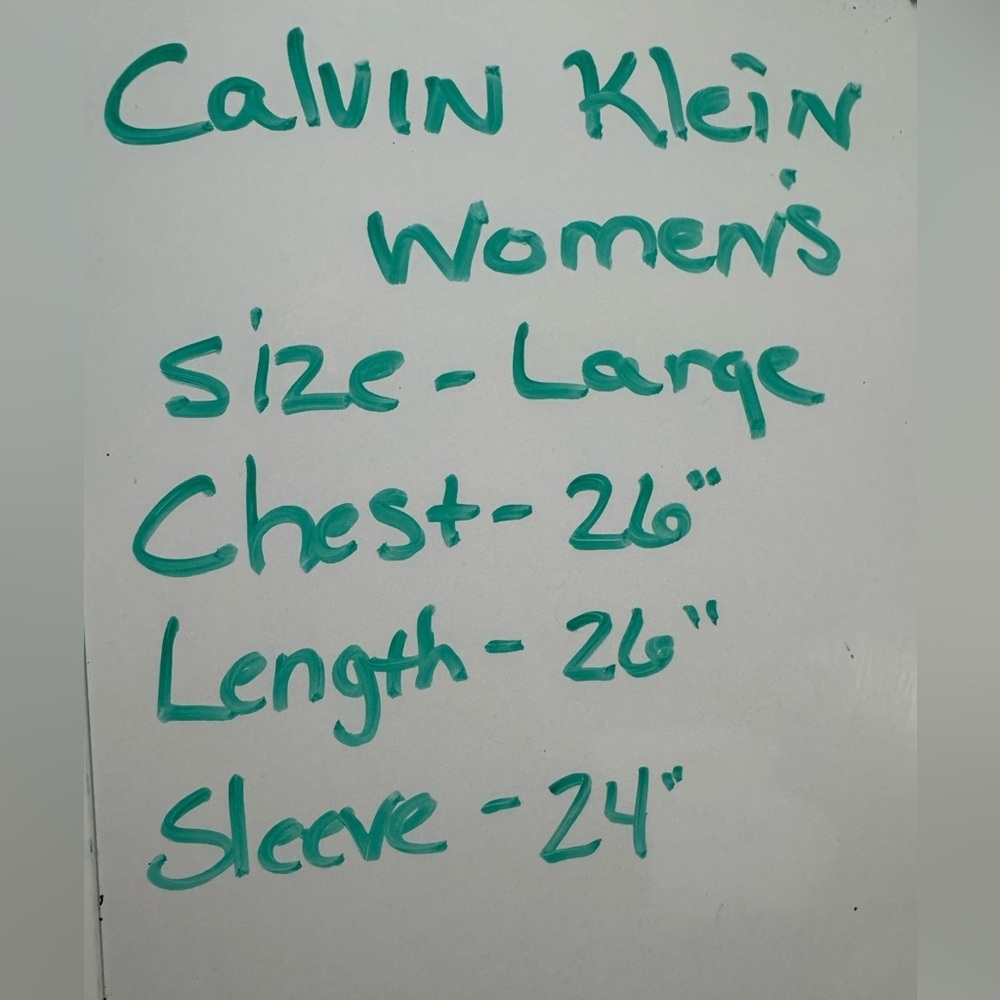 Calvin Klein
Women's
Size - Large
Chest - 26"
Length - 26"
Sleeve - 24"